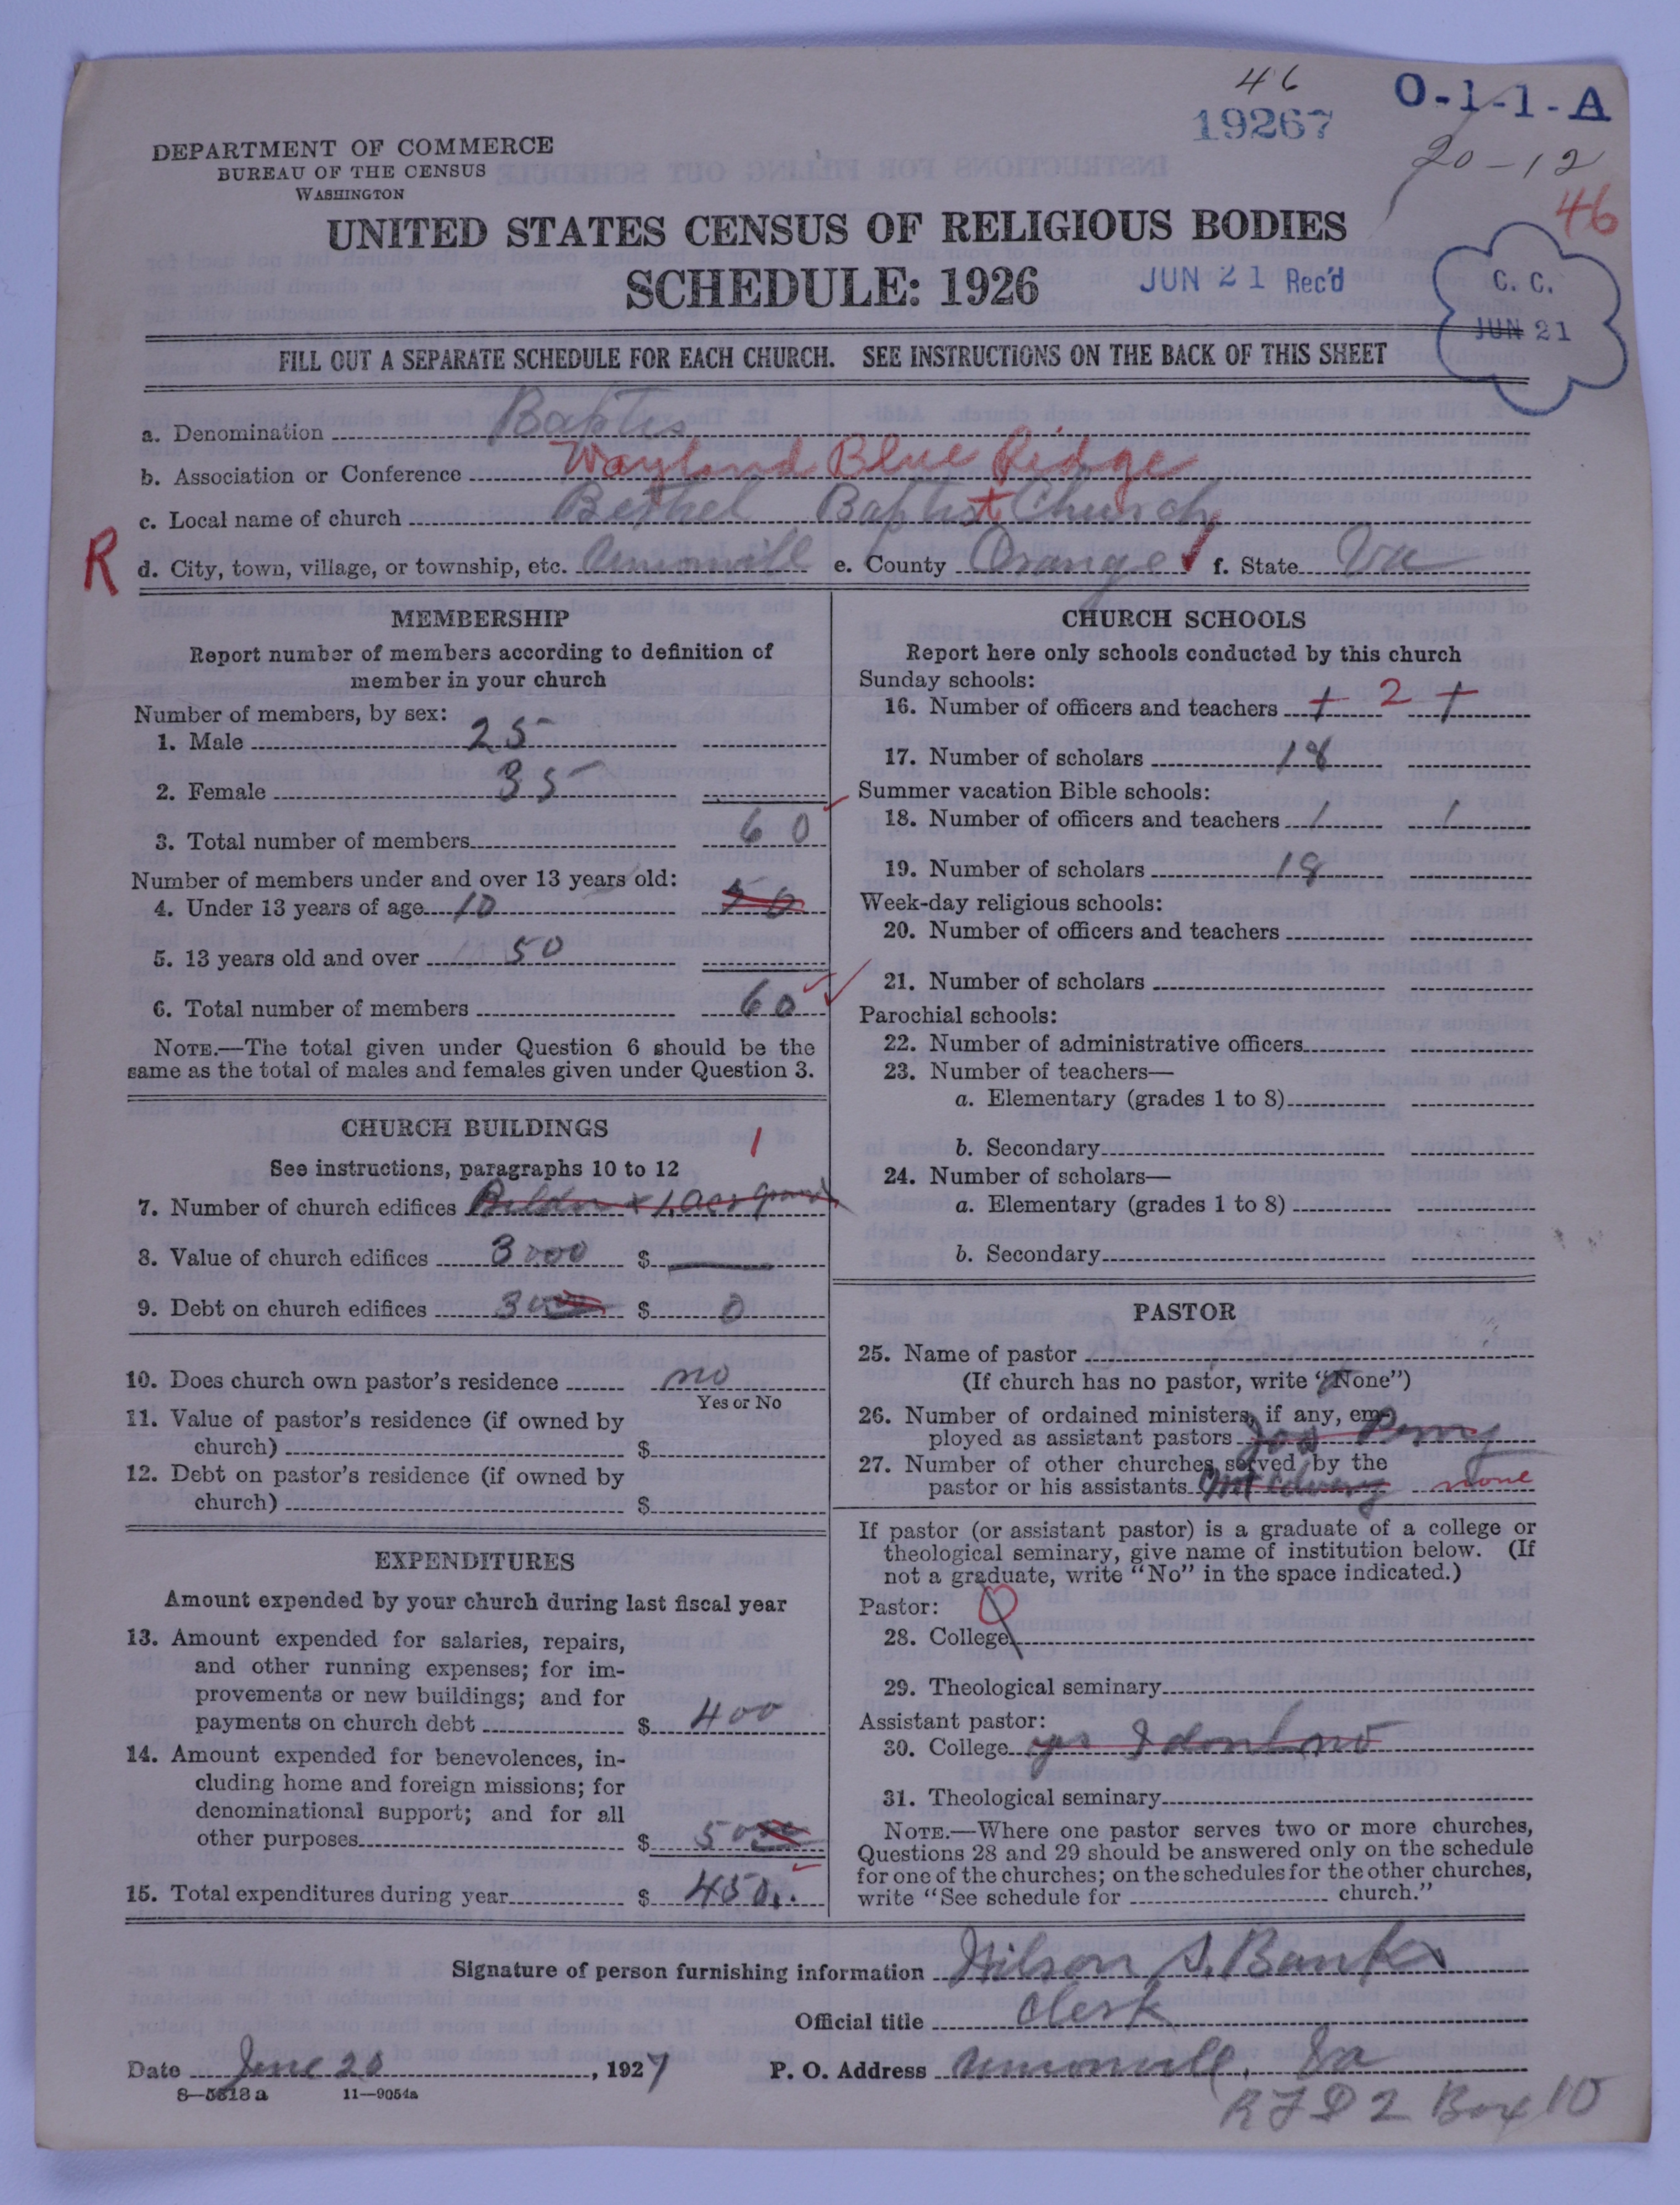 46
19267
O-1-1-A
20-12
46
DEPARTMENT OF COMMERCE
BUREAU OF THE CENSUS
WASHINGTON
UNITED STATES CENSUS OF RELIGIOUS BODIES
SCHEDULE: 1926
JUN 21 Rec'd
C. C.
JUN 21
FILL OUT A SEPARATE SCHEDULE FOR EACH CHURCH. SEE INSTRUCTIONS ON THE BACK OF THIS SHEET
a. Denomination Baptis
b. Association or Conference Wayland Blue Ridge
c. Local name of church Bethel Baptist Church
R
d. City, town, village, or township, etc. Unionvill e. County Orange f. State Va
MEMBERSHIP
Report number of members according to definition of
member in your church
Number of members, by sex:
1. Male 25
2. Female 35
3. Total number of members 60
Number of members under and over 13 years old:
4. Under 13 years of age 10 50
5. 13 years old and over 50
6. Total number of members 60
NOTE.—The total given under Question 6 should be the
same as the total of males and females given under Question 3.
CHURCH BUILDINGS
1
See instructions, paragraphs 10 to 12
7. Number of church edifices
8. Value of church edifices 3000 $
9. Debt on church edifices $ 0
10. Does church own pastor's residence no
Yes or No
11. Value of pastor's residence (if owned by
church) $
12. Debt on pastor's residence (if owned by
church) $
EXPENDITURES
Amount expended by your church during last fiscal year
13. Amount expended for salaries, repairs,
and other running expenses; for im-
provements or new buildings; and for
payments on church debt $ 400
14. Amount expended for benevolences, in-
cluding home and foreign missions; for
denominational support; and for all
other purposes $ 50
15. Total expenditures during year $ 450
CHURCH SCHOOLS
Report here only schools conducted by this church
Sunday schools:
16. Number of officers and teachers 1 2 1
17. Number of scholars 18
Summer vacation Bible schools:
18. Number of officers and teachers 1 1
19. Number of scholars 18
Week-day religious schools:
20. Number of officers and teachers
21. Number of scholars
Parochial schools:
22. Number of administrative officers
23. Number of teachers—
a. Elementary (grades 1 to 8)
b. Secondary
24. Number of scholars—
a. Elementary (grades 1 to 8)
b. Secondary
PASTOR
25. Name of pastor
(If church has no pastor, write "None")
26. Number of ordained ministers, if any, em-
ployed as assistant pastors
27. Number of other churches served by the
pastor or his assistants none
If pastor (or assistant pastor) is a graduate of a college or
theological seminary, give name of institution below. (If
not a graduate, write "No" in the space indicated.)
Pastor:
28. College
29. Theological seminary
Assistant pastor:
30. College yes I dont no
31. Theological seminary
NOTE.—Where one pastor serves two or more churches,
Questions 28 and 29 should be answered only on the schedule
for one of the churches; on the schedules for the other churches,
write "See schedule for church."
Signature of person furnishing information Wilson S. Banks
Official title Clerk
Date June 20, 1927 P. O. Address Unionvill, Va
8—5618a 11—9054a
RFD 2 Box 10